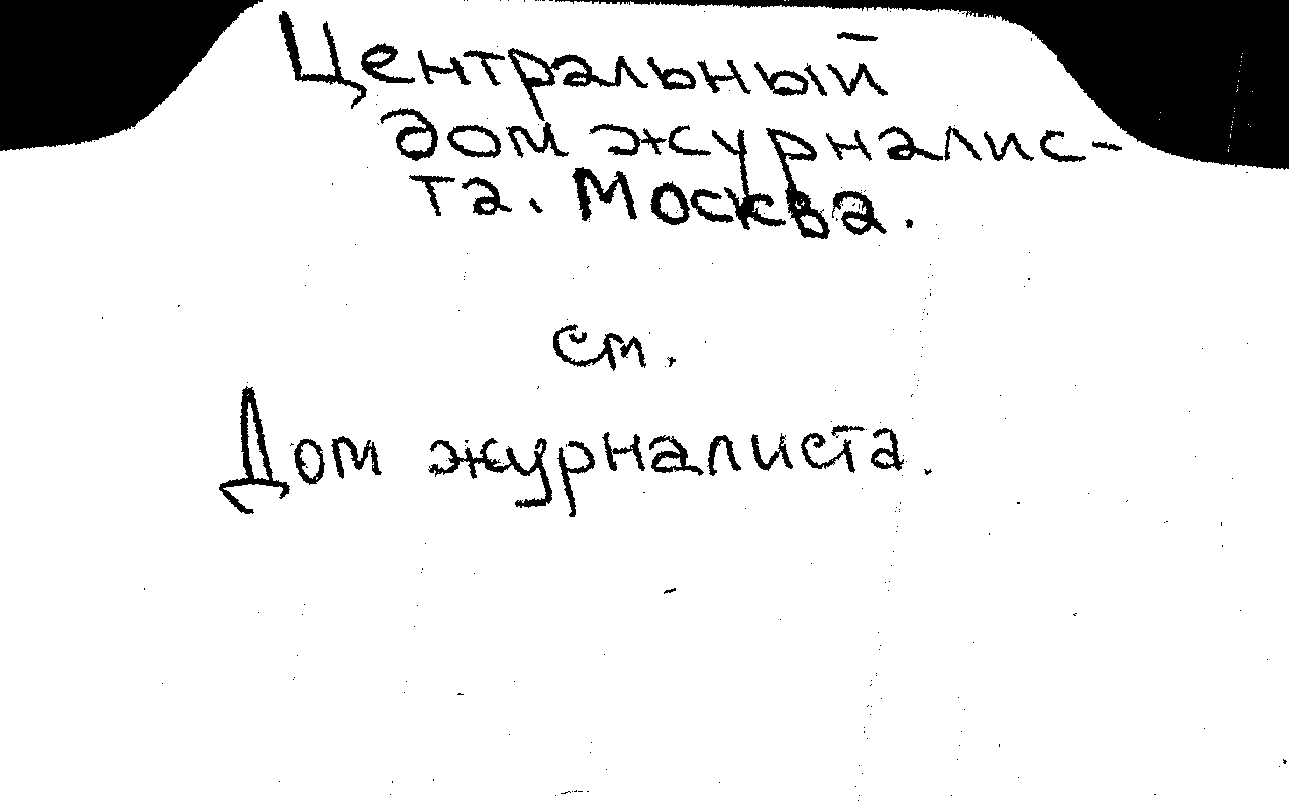 Центральный
дом журналис-
та. Москва.
см.
Дом журналиста.